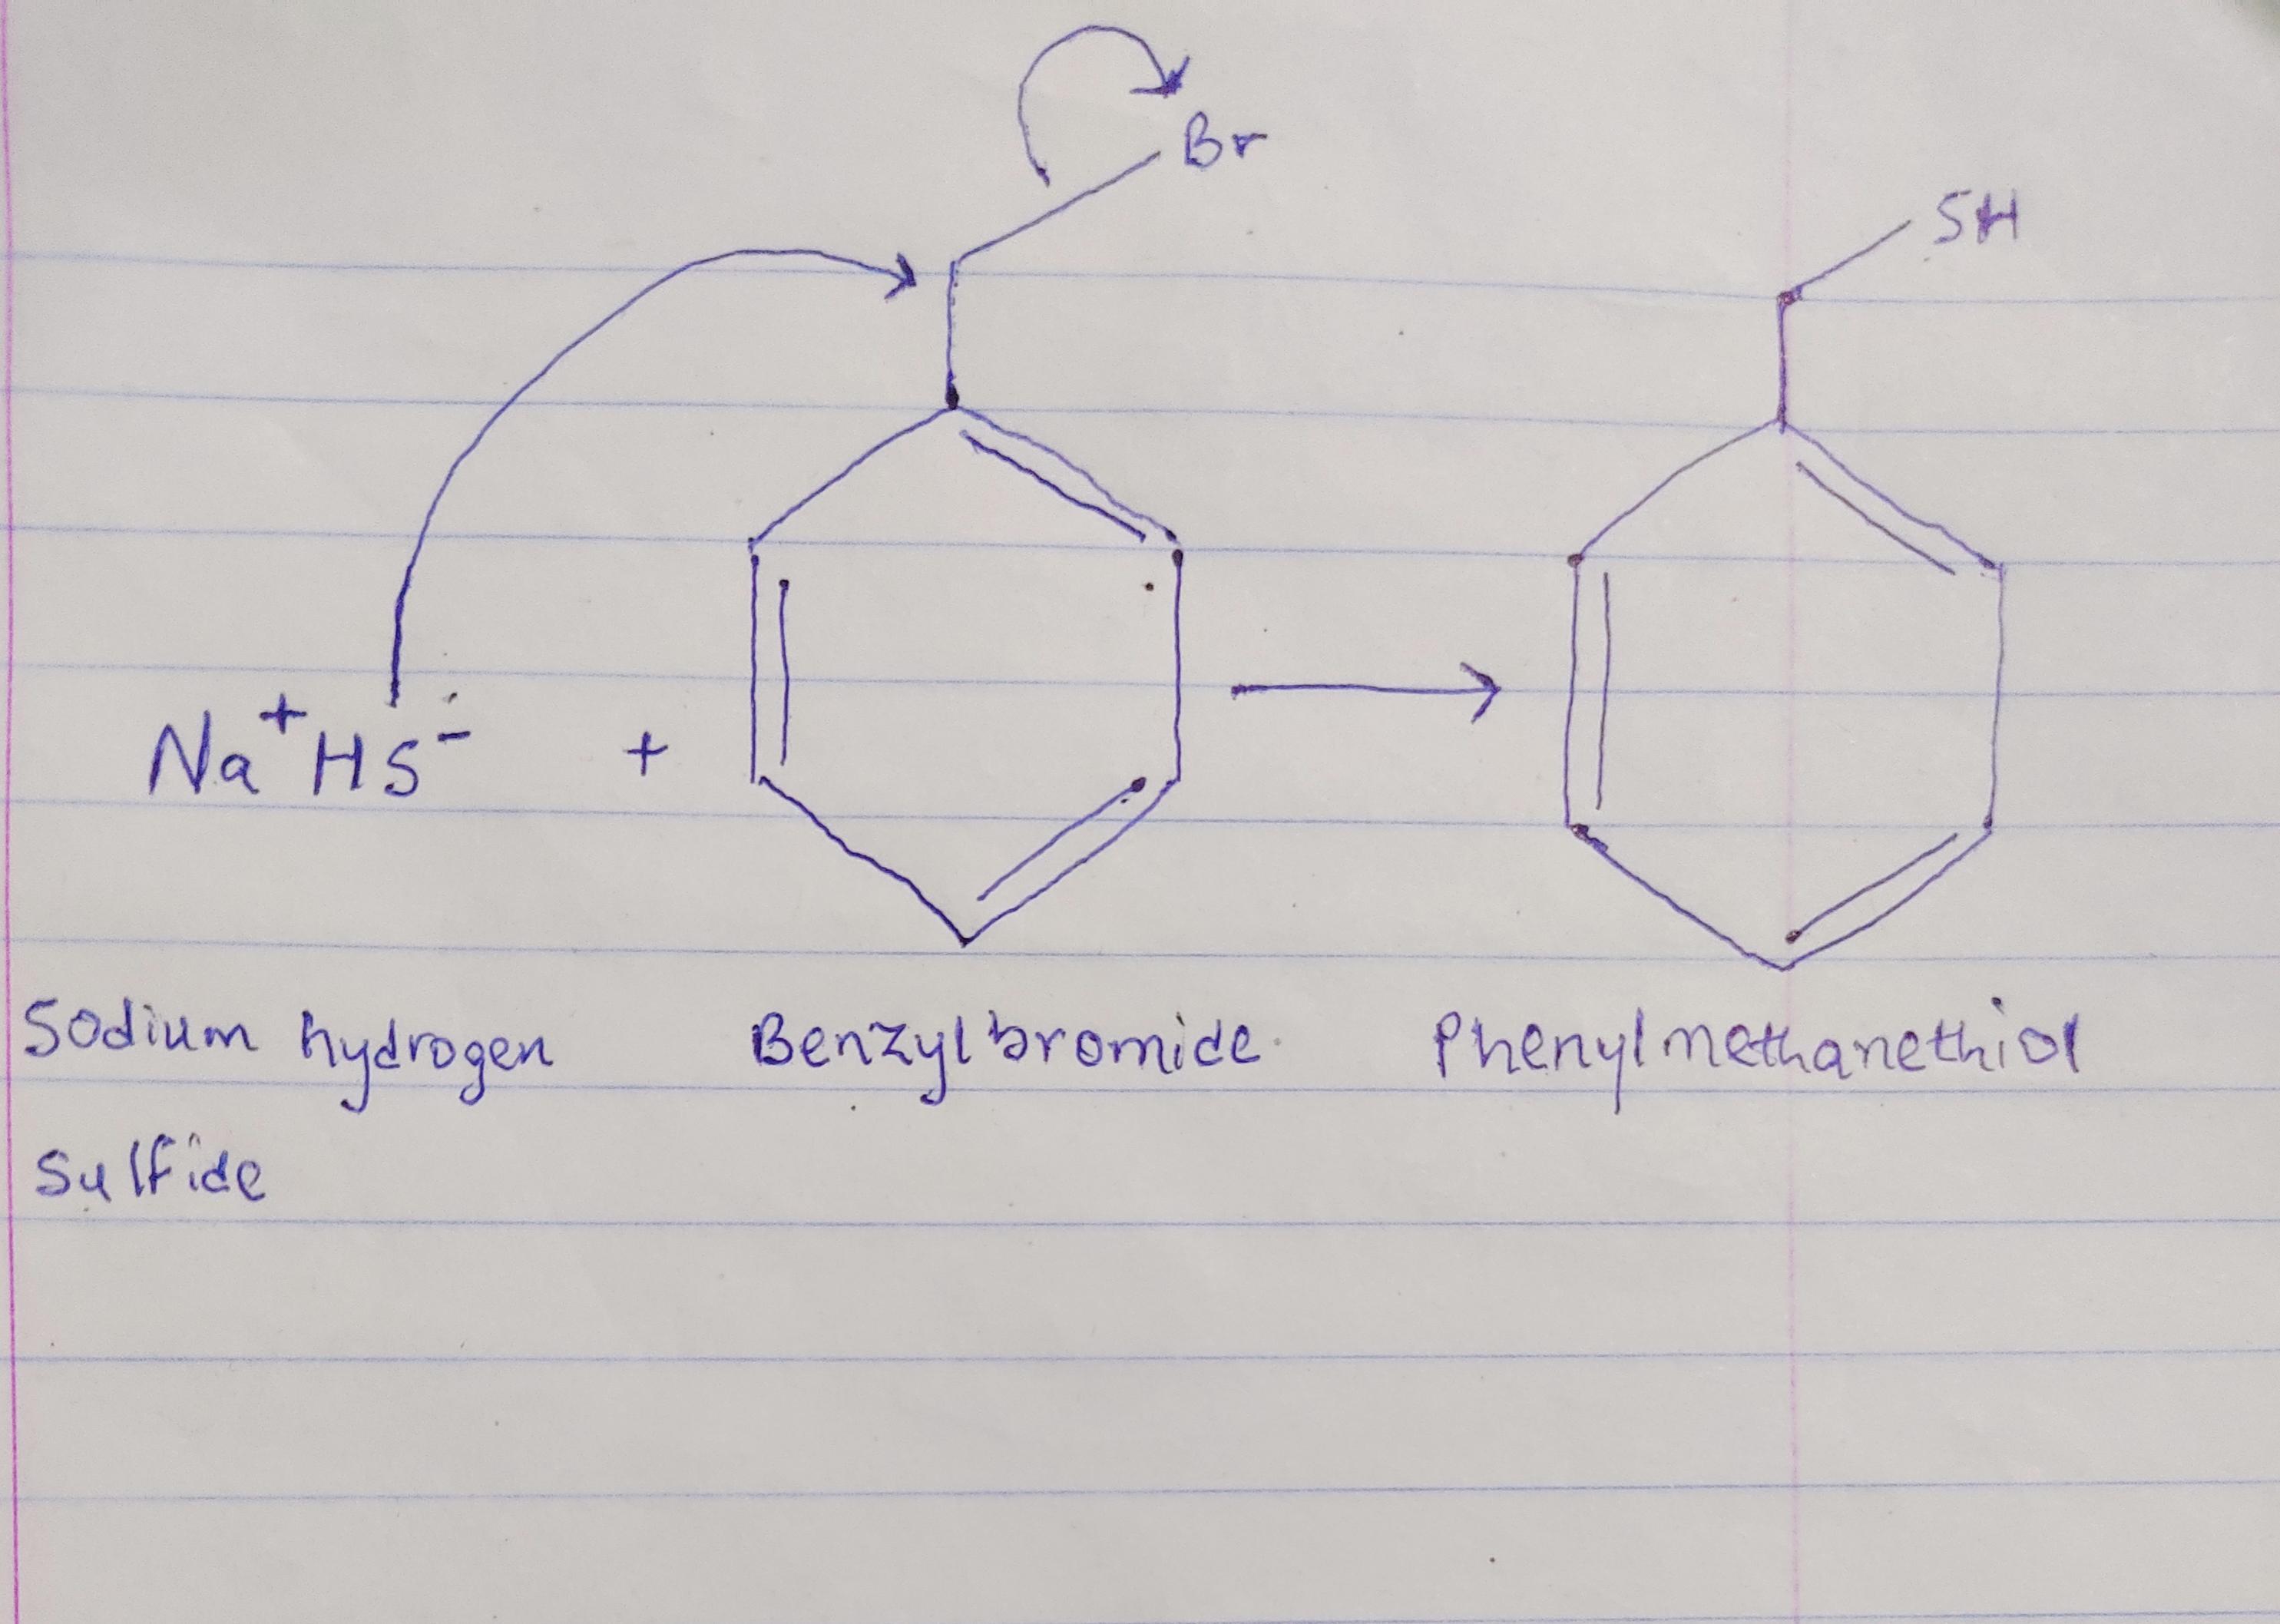 Br
SH
Na⁺HS⁻ +
Sodium hydrogen Benzylbromide Phenylmethanethiol
sulfide